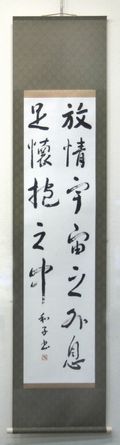 放情宇宙之外息
足懷抱之中
和子书